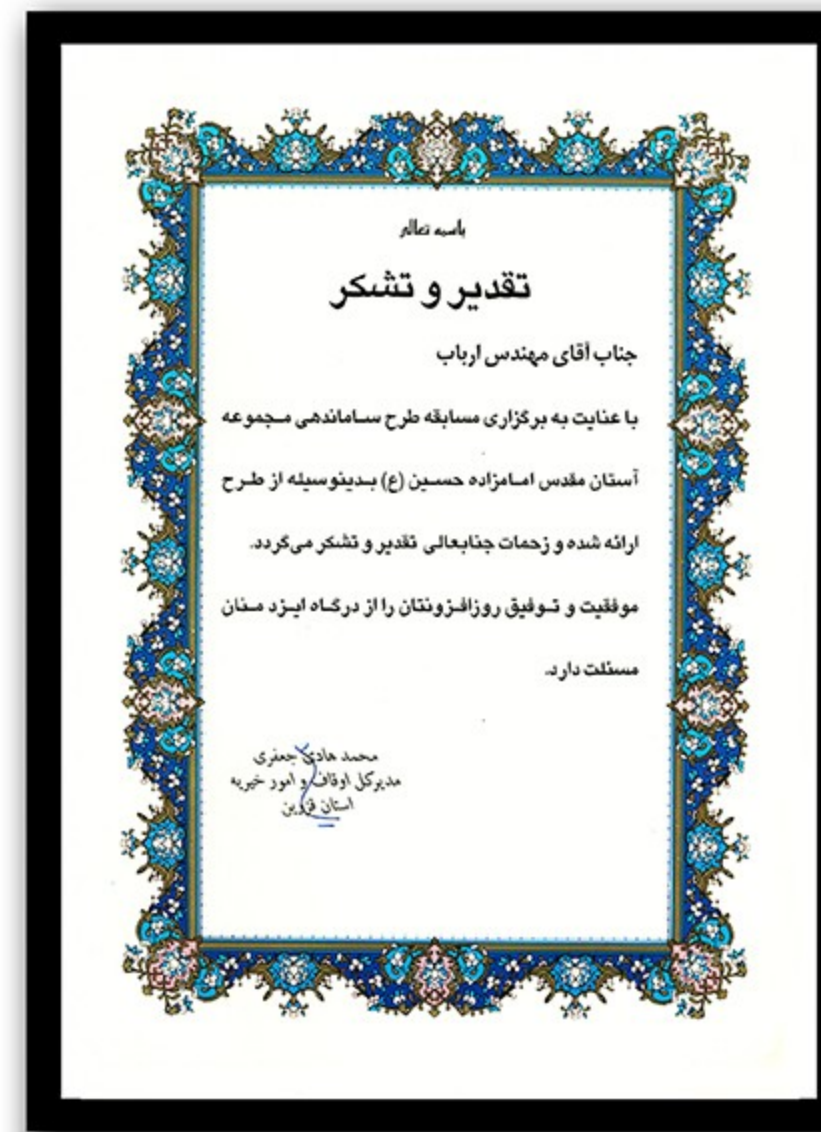 باسمه تعالی
تقدیر و تشکر
جناب آقای مهندس ارباب
با عنایت به برگزاری مسابقه طرح ساماندهی مجموعه
آستان مقدس امامزاده حسین (ع) بدینوسیله از طرح
ارائه شده و زحمات جنابعالی تقدیر و تشکر می‌گردد.
موفقیت و توفیق روزافزونتان را از درگاه ایزد منان
مسئلت دارد.
محمد هادی جعفری
مدیرکل اوقاف و امور خیریه
استان قزوین